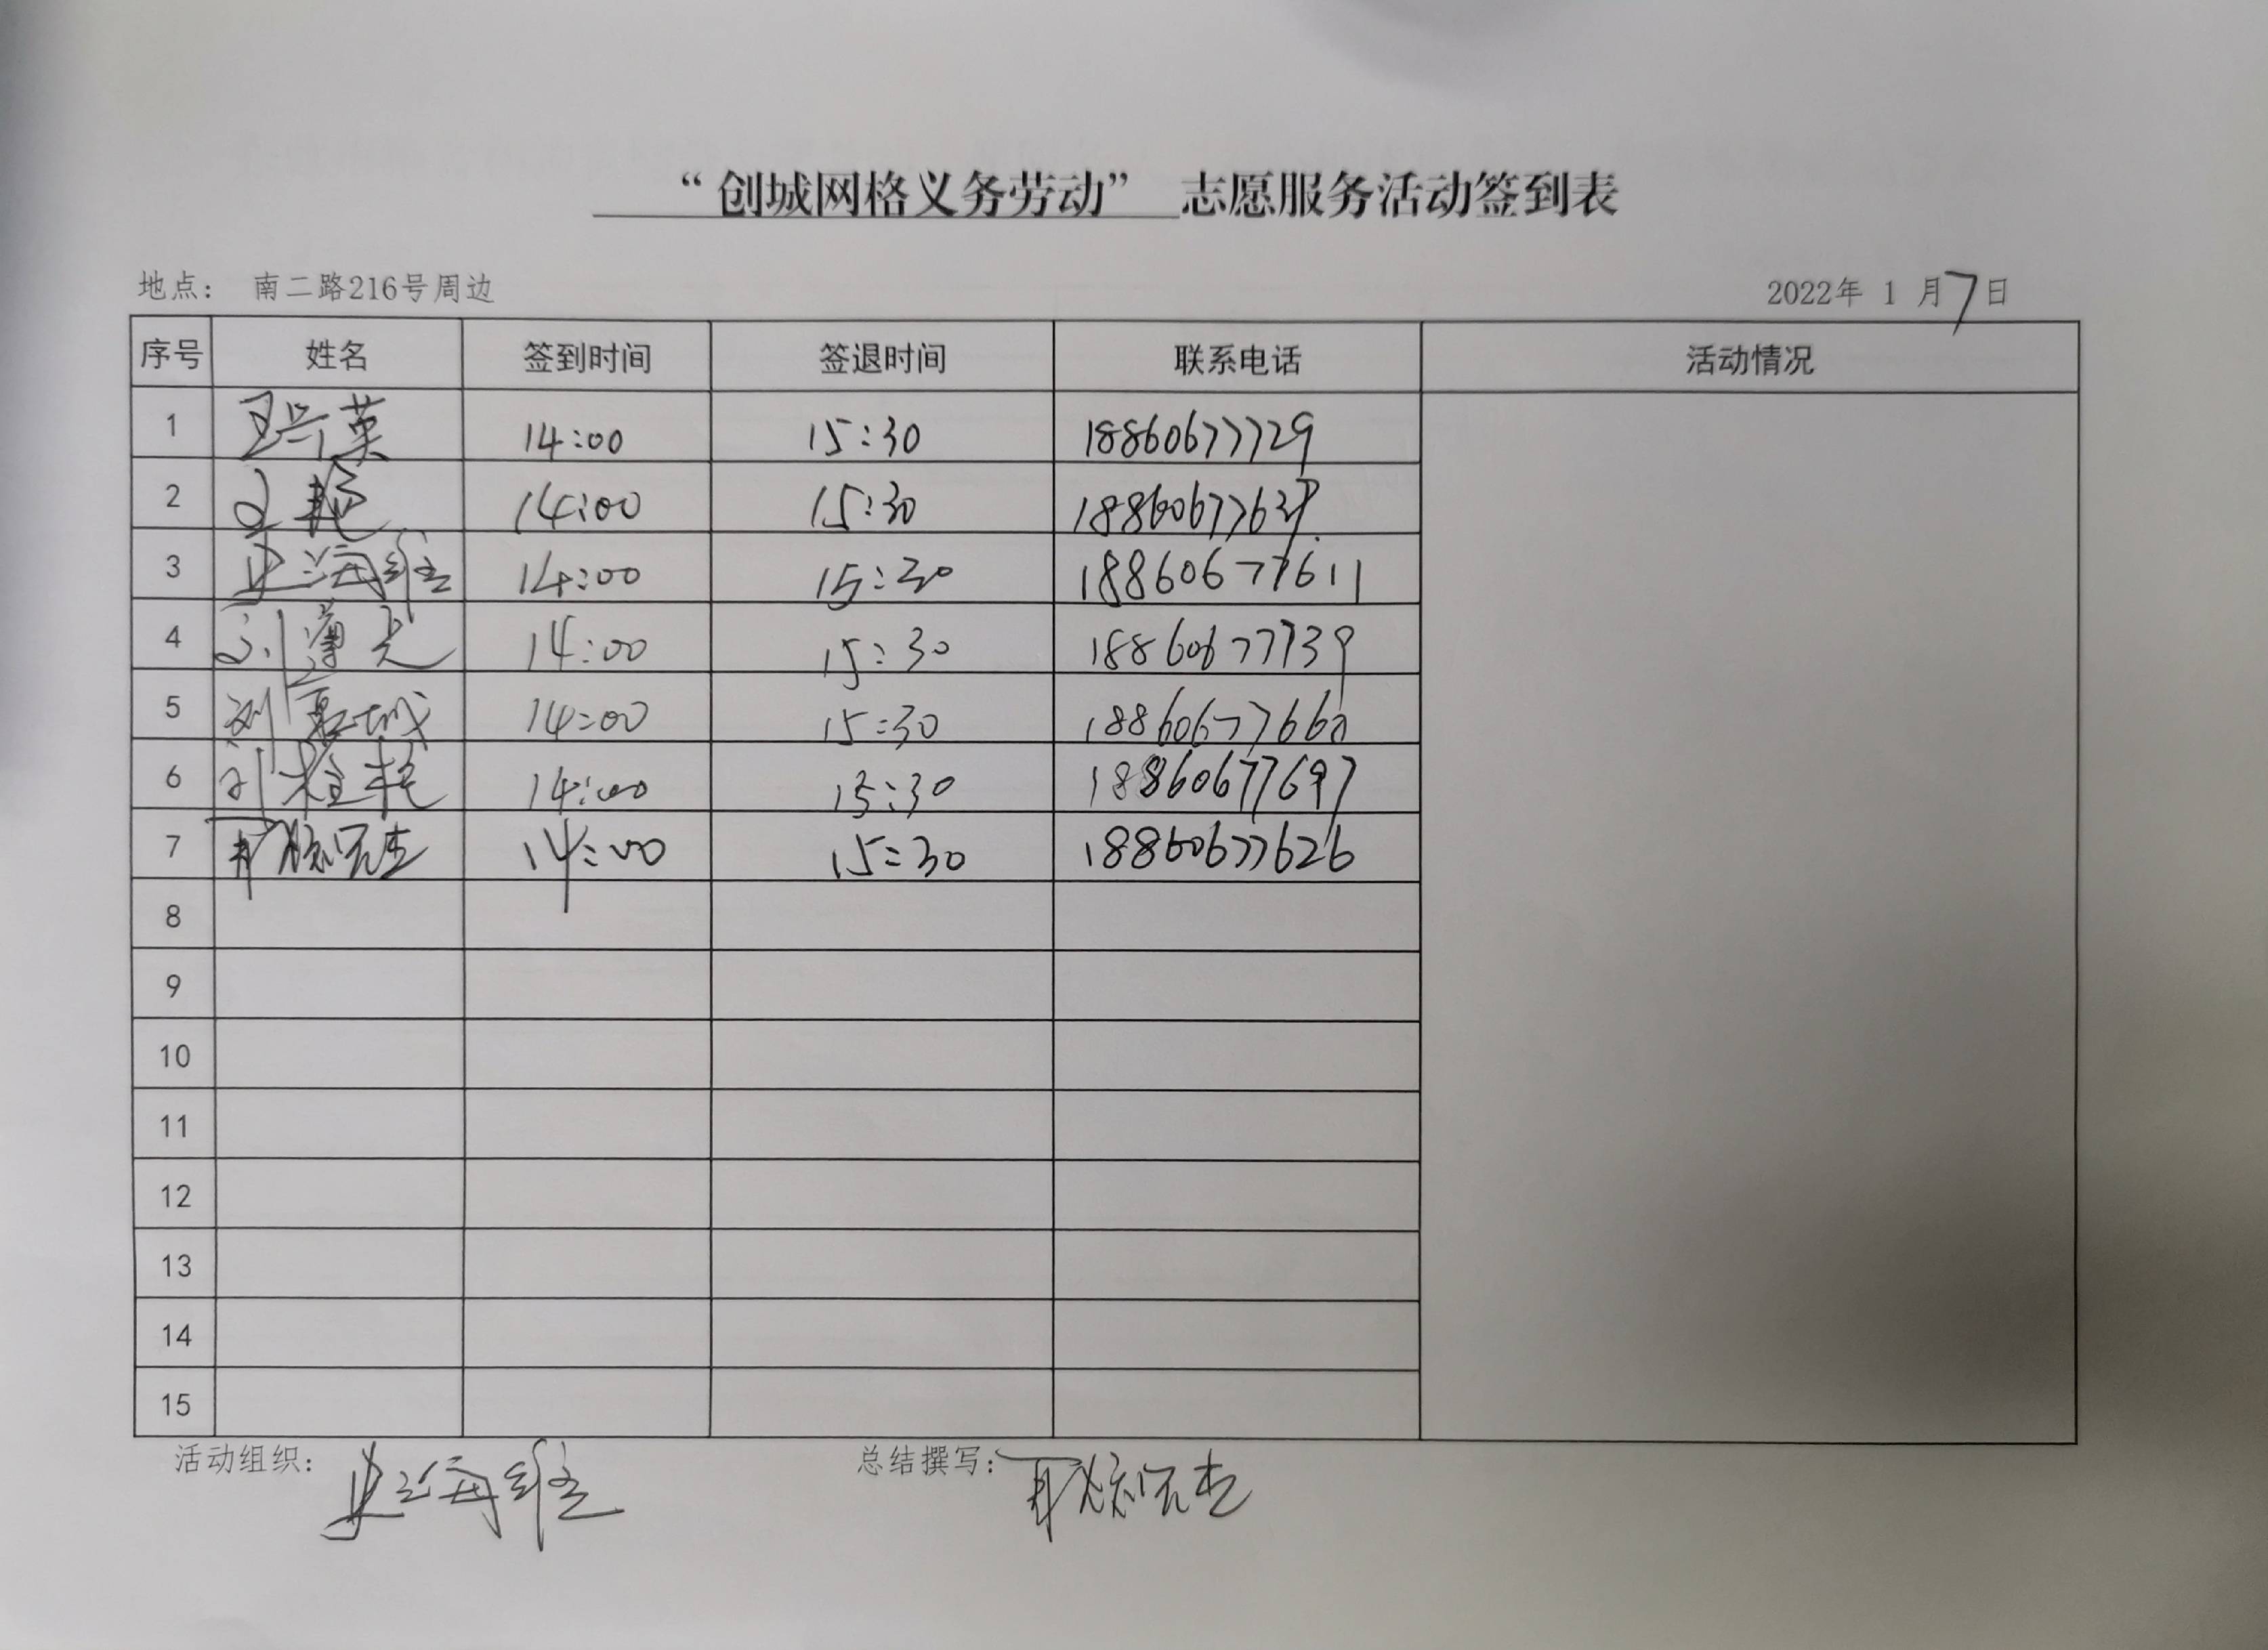 “创城网格义务劳动” 志愿服务活动签到表
地点： 南二路216号周边 2022年 1 月7日
序号 姓名 签到时间 签退时间 联系电话 活动情况
1 王兴英 14:00 15:30 18860677729
2 王艳 14:00 15:30
3 史海维 14:00 15:30 18860677611
4 刘 14:00 15:30 18860677739
5 刘 城 14:00 15:30
6 刘桂艳 14:00 15:30 18860677697
7 14:00 15:30 18860677626
8
9
10
11
12
13
14
15
活动组织： 史海维 总结撰写：